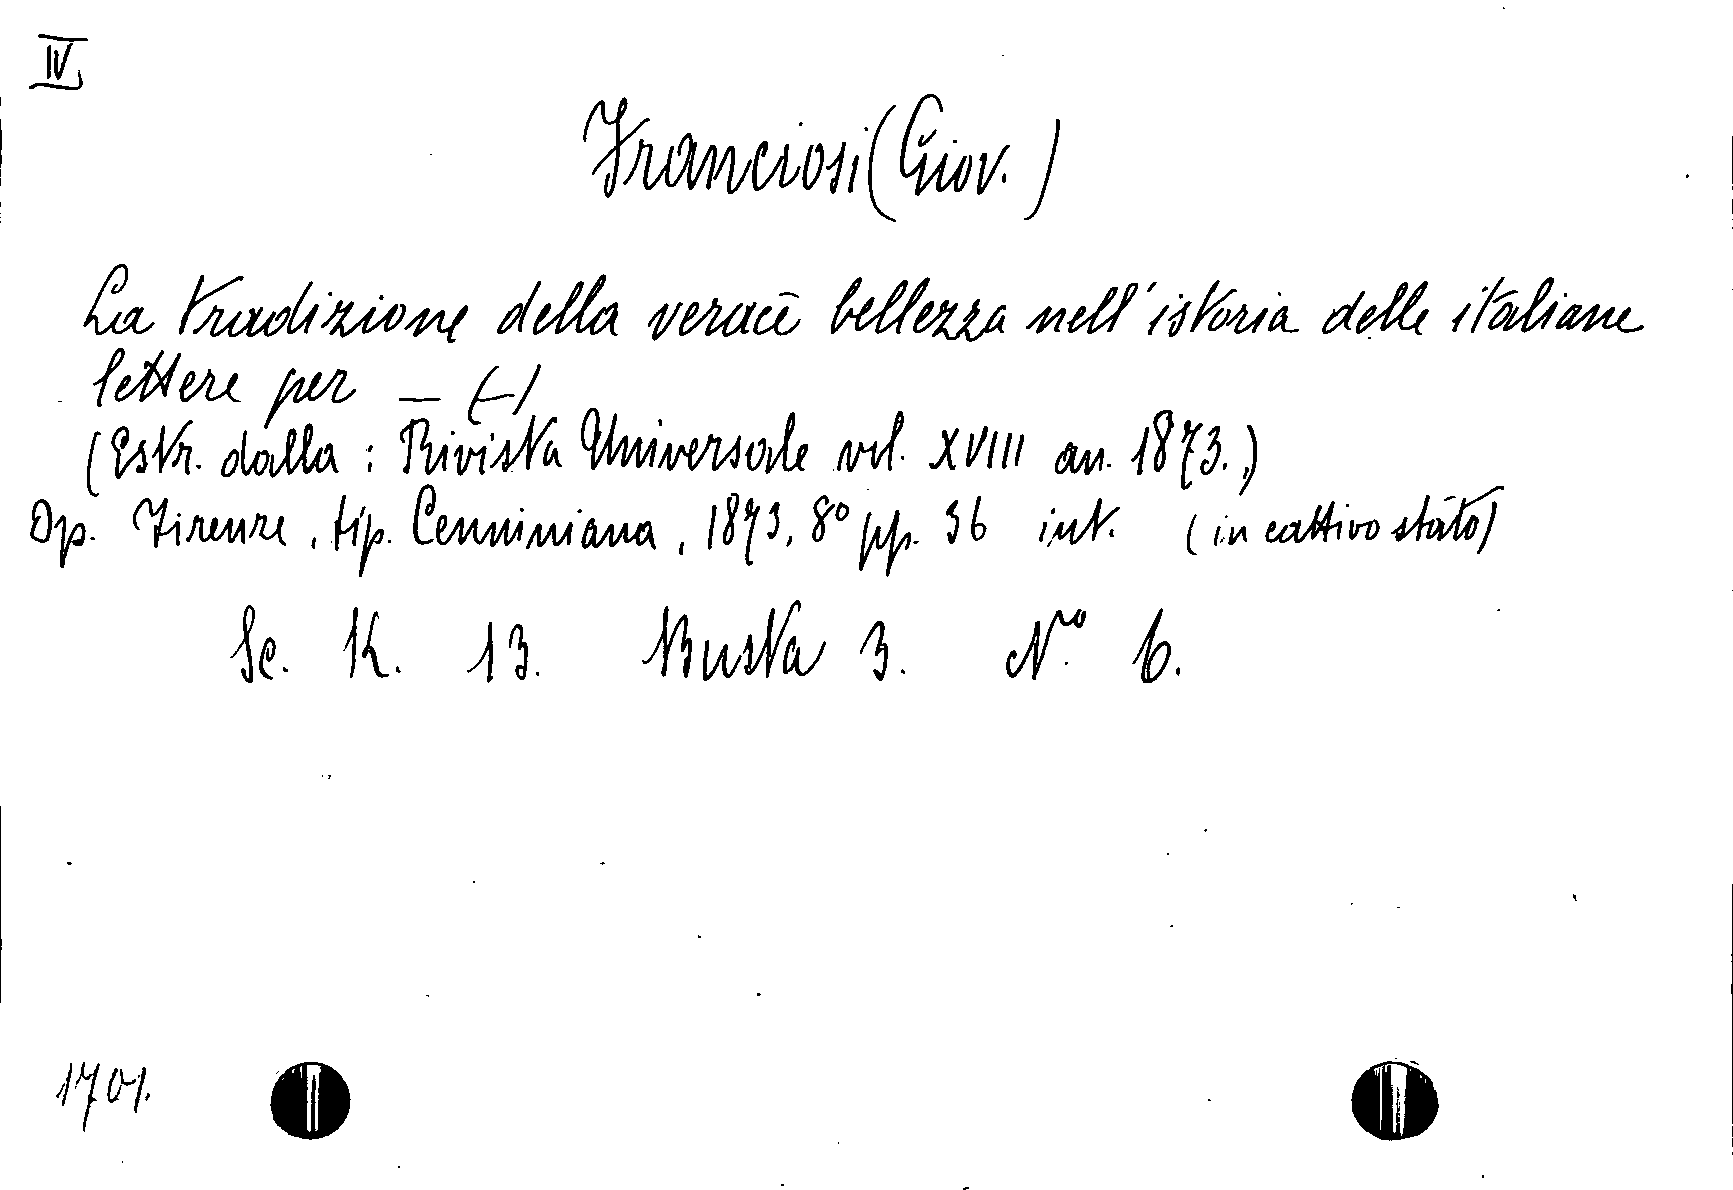 IV
Franciosi (Giov.)
La tradizione della verace bellezza nell'istoria delle italiane
lettere per — (—)
(Estr. dalla: Rivista Universale vol. XVIII an. 1873.)
Op. Firenze, tip. Cenniniana, 1873, 8º pp. 36 int. (in cattivo stato)
Sc. K. 13. Busta 3. Nº 6.
1701.